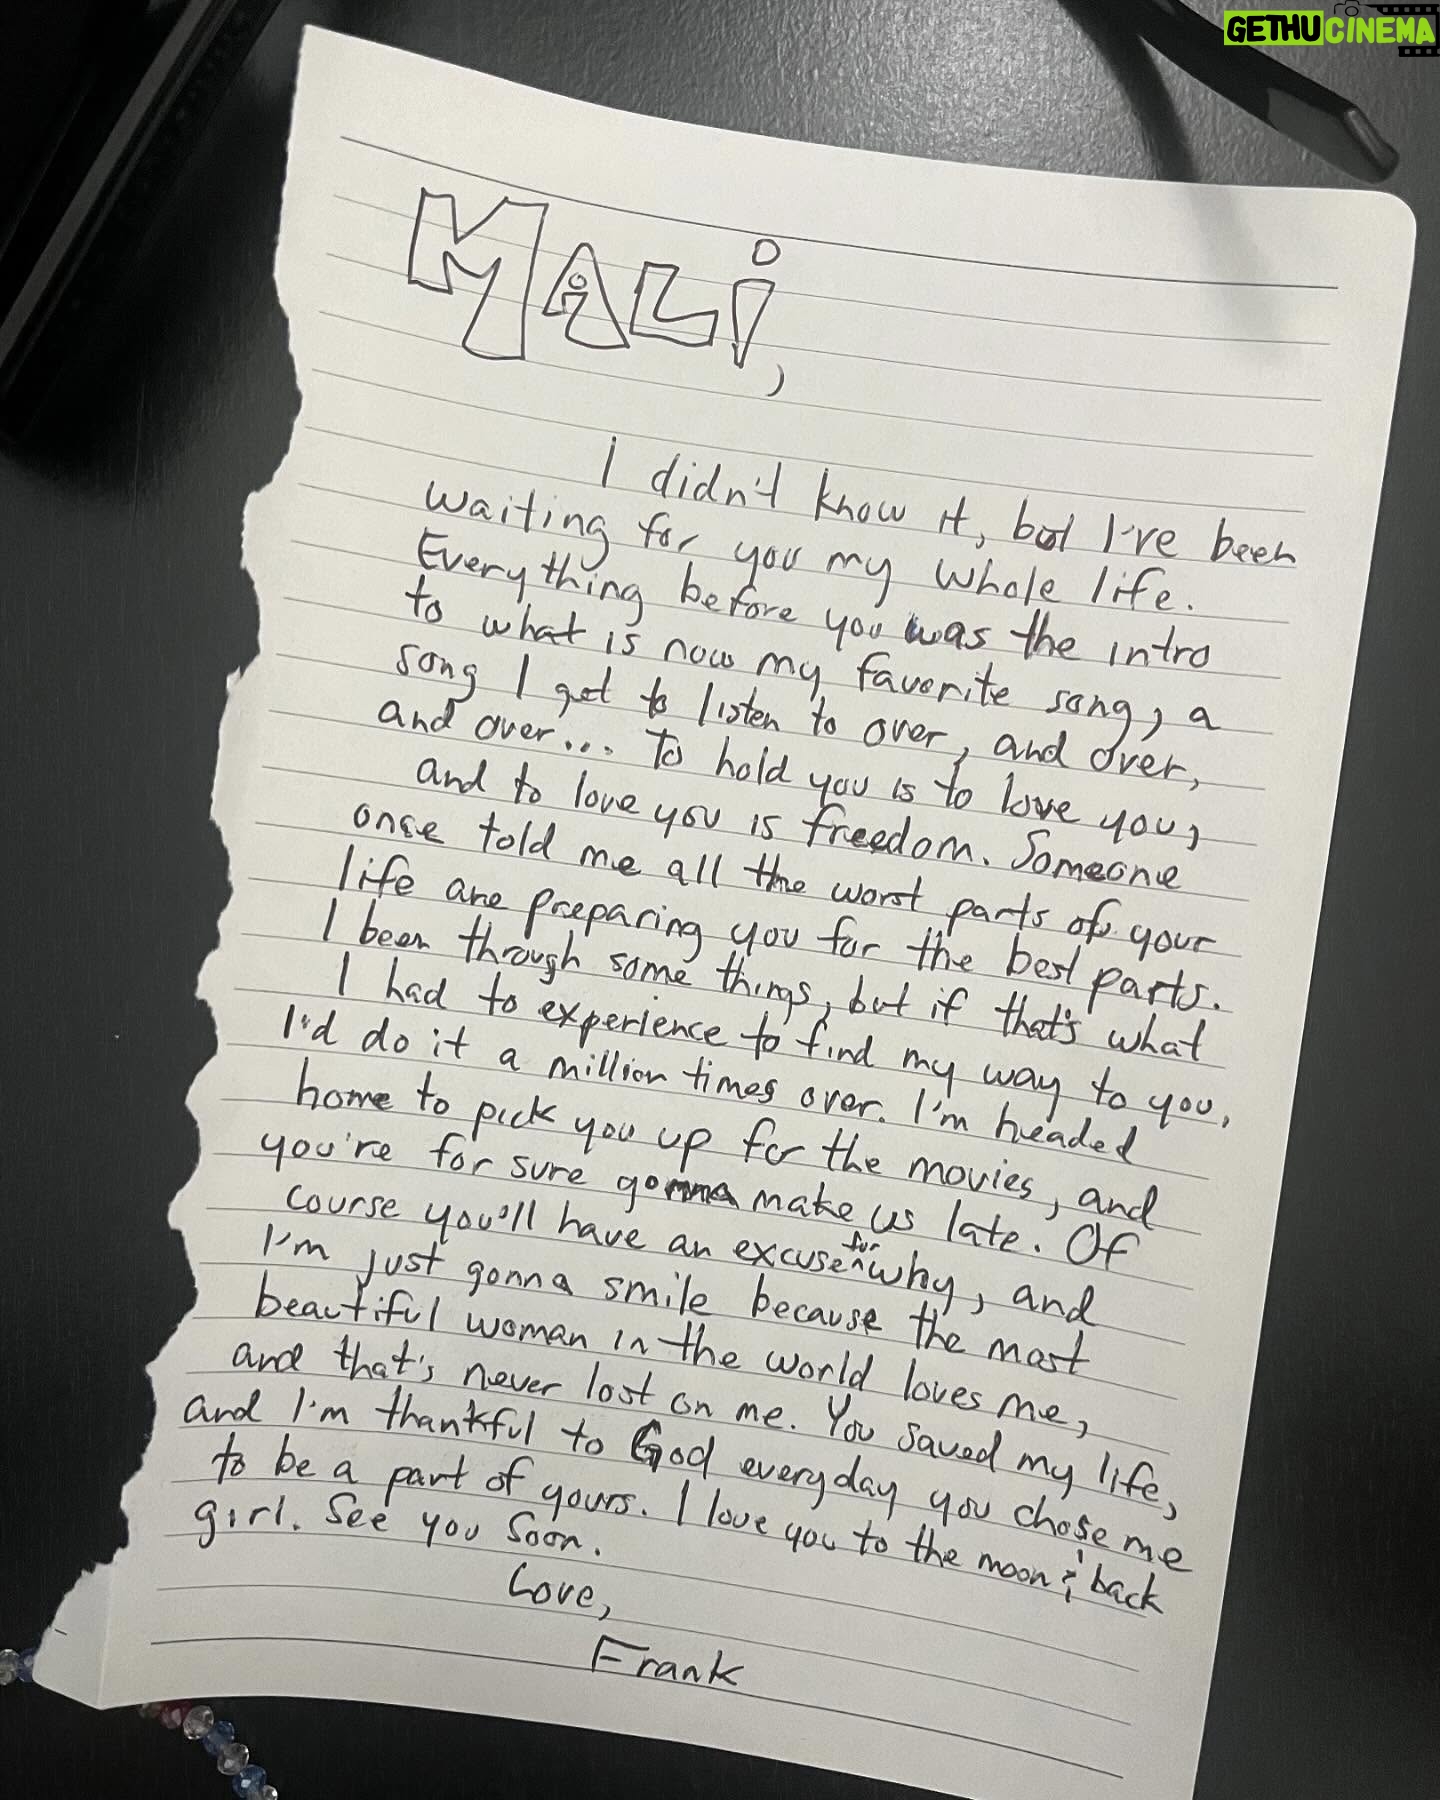 GETHUCINEMA
MALi,
I didn't know it, but I've been
waiting for you my whole life.
Everything before you was the intro
to what is now my favorite song, a
song I get to listen to over, and over,
and over... To hold you is to love you,
and to love you is freedom. Someone
once told me all the worst parts of your
life are preparing you for the best parts.
I been through some things, but if that's what
I had to experience to find my way to you,
I'd do it a million times over. I'm headed
home to pick you up for the movies, and
you're for sure gonna make us late. Of
course you'll have an excuse for why, and
I'm just gonna smile because the most
beautiful woman in the world loves me,
and that's never lost on me. You saved my life,
and I'm thankful to God everyday you chose me
to be a part of yours. I love you to the moon & back
girl. See you soon.
Love,
Frank